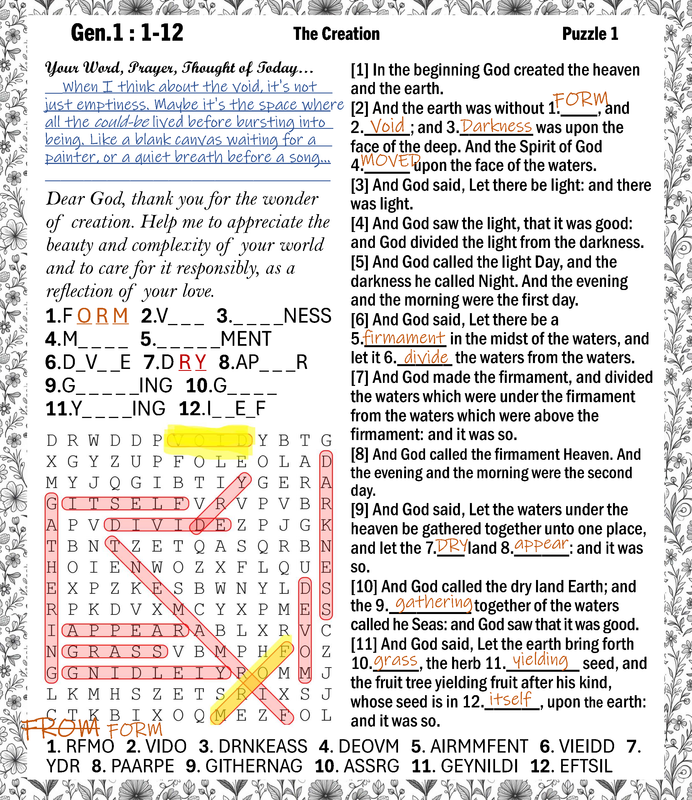 Gen.1 : 1-12
The Creation
Puzzle 1
Your Word, Prayer, Thought of Today...
When I think about the void, it's not
just emptiness. Maybe it's the space where
all the could-be lived before bursting into
being. Like a blank canvas waiting for a
painter, or a quiet breath before a song...
Dear God, thank you for the wonder
of creation. Help me to appreciate the
beauty and complexity of your world
and to care for it responsibly, as a
reflection of your love.
1.F O R M 2.V_ _ _ 3._ _ _ _NESS
4.M_ _ _ _ 5._ _ _ _ _MENT
6.D_V_ _E 7.D R Y 8.AP_ _ _R
9.G_ _ _ _ _ING 10.G_ _ _ _
11.Y_ _ _ _ING 12.I_ _E_F
D R W D D P V O I D Y B T G
X G Y Z U P F O L E O L A D
M Y J Q G I B T I Y G E R A
G I T S E L F V R V P V B R
A P V D I V I D E Z P J G K
T B N T Z E T Q A S Q R B N
H O I E N W O Z X F L Q U E
E X P Z K E S B W N Y L D S
R P K D V X M C Y X P M E S
I A P P E A R A B L X R V C
N G R A S S V B M P H F O Z
G G N I D L E I Y R O M M J
L K M H S Z E T S R I X S J
C T K B I X O Q M E Z F O L
FROM FORM
[1] In the beginning God created the heaven
and the earth.
[2] And the earth was without 1.FORM, and
2. Void; and 3.Darkness was upon the
face of the deep. And the Spirit of God
4.MOVED upon the face of the waters.
[3] And God said, Let there be light: and there
was light.
[4] And God saw the light, that it was good:
and God divided the light from the darkness.
[5] And God called the light Day, and the
darkness he called Night. And the evening
and the morning were the first day.
[6] And God said, Let there be a
5.firmament in the midst of the waters, and
let it 6. divide the waters from the waters.
[7] And God made the firmament, and divided
the waters which were under the firmament
from the waters which were above the
firmament: and it was so.
[8] And God called the firmament Heaven. And
the evening and the morning were the second
day.
[9] And God said, Let the waters under the
heaven be gathered together unto one place,
and let the 7.DRY land 8.appear: and it was
so.
[10] And God called the dry land Earth; and
the 9. gathering together of the waters
called he Seas: and God saw that it was good.
[11] And God said, Let the earth bring forth
10.grass, the herb 11. yielding seed, and
the fruit tree yielding fruit after his kind,
whose seed is in 12.itself, upon the earth:
and it was so.
1. RFMO 2. VIDO 3. DRNKEASS 4. DEOVM 5. AIRMMFENT 6. VIEIDD 7.
YDR 8. PAARPE 9. GITHERNAG 10. ASSRG 11. GEYNILDI 12. EFTSIL